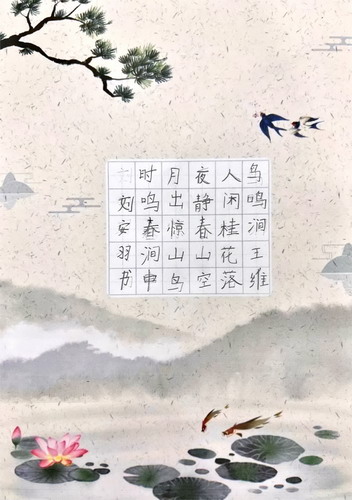 鸟鸣涧王维
人闲桂花落
夜静春山空
月出惊山鸟
时鸣春涧申
刘安羽书